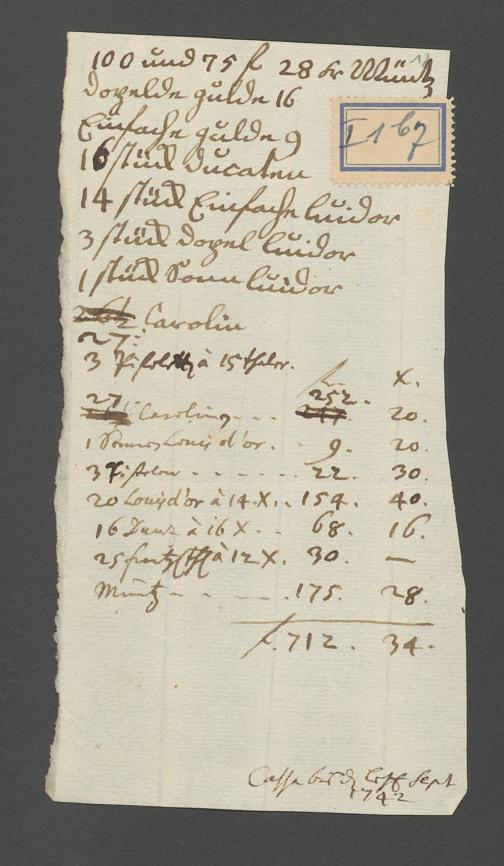 100 und 75 f 28 xr Müntz
Dopelde gulde 16
I 167
Einfache gulde 9
16 stück Ducaten
14 stück Einfache luidor
3 stück Dopel luidor
1 stück Sonn luidor
Carolin
27
3 à 15 thaler.
f. X.
27 Carolin 252. 20.
1 Sonnen Louis d'or. 9. 20.
3 Pistolen 22. 30.
20 Louis d'or à 14. X. 154. 40.
16 Duc à 16 X 68. 16.
25 à 12 X. 30. —
Müntz 175. 28.
f. 712. 34.
Cassa Sept
1742